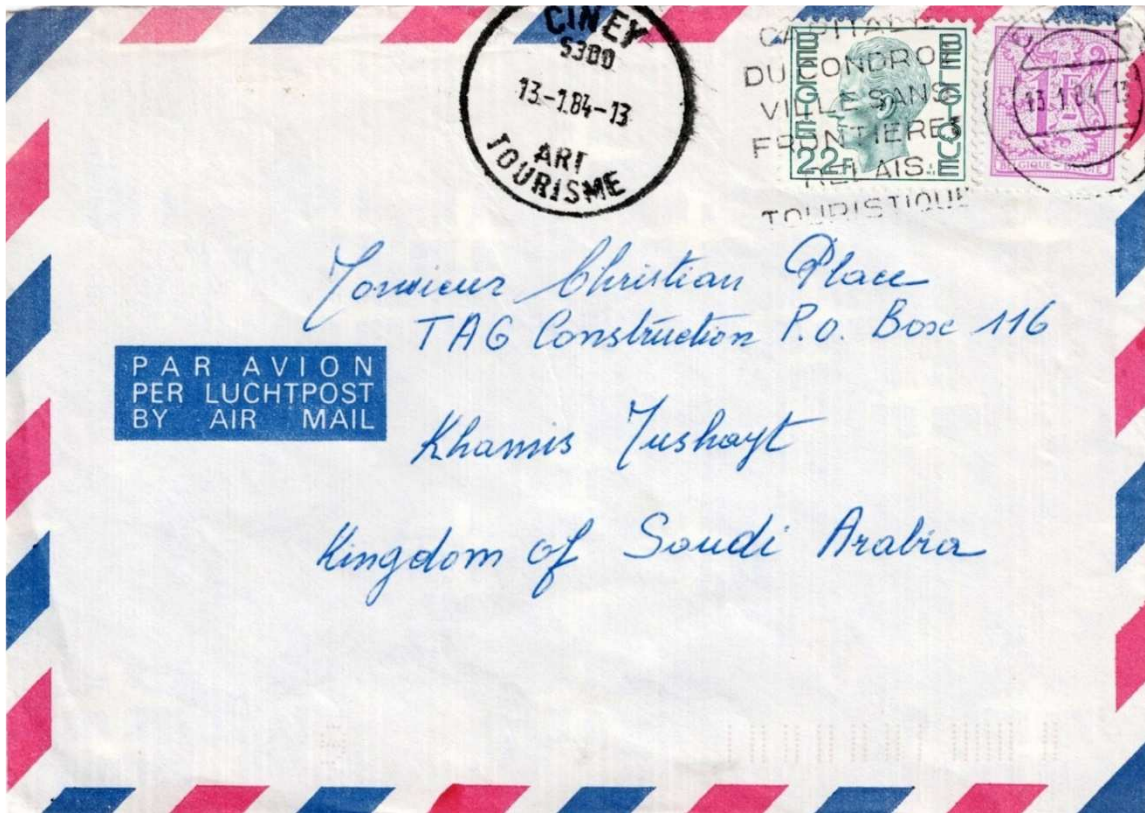 CINEY
5300
13.-1.84-13
ART
TOURISME
CAPITALE
DU CONDROZ
VILLE SANS
FRONTIERES
RELAIS
TOURISTIQUE
BELGIE
BELGIQUE
22F
1F
BELGIQUE-BELGIË
13.1.84-13
Monsieur Christian Place
TAG Construction P.O. Box 116
PAR AVION
PER LUCHTPOST
BY AIR MAIL
Khamis Mushayt
Kingdom of Saudi Arabia